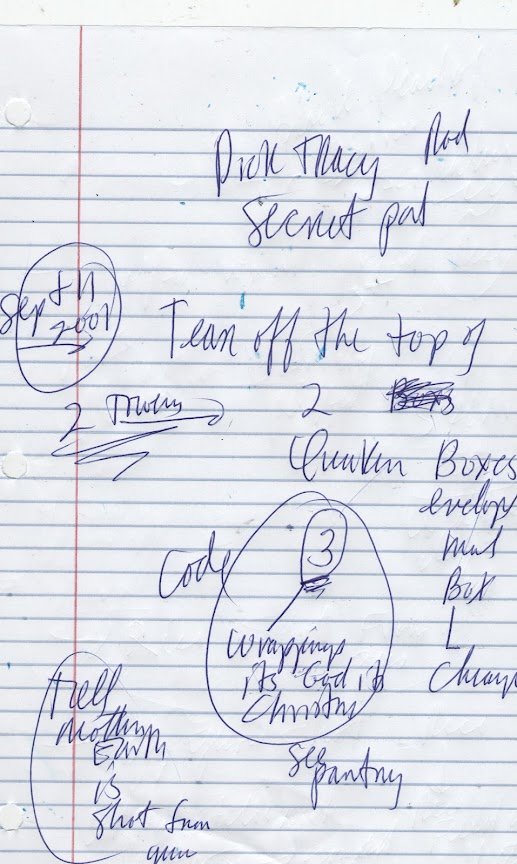 Dick Tracy Rod
Secret pat
Sep th 11
2001
Tear off the top of
2 Towers
2
Quaker Boxes
envelope
mail
Box
L
Code
3
Wrappings
its God its
Christus
tell
mother
Earth
is
shot from
gun
see
pantry